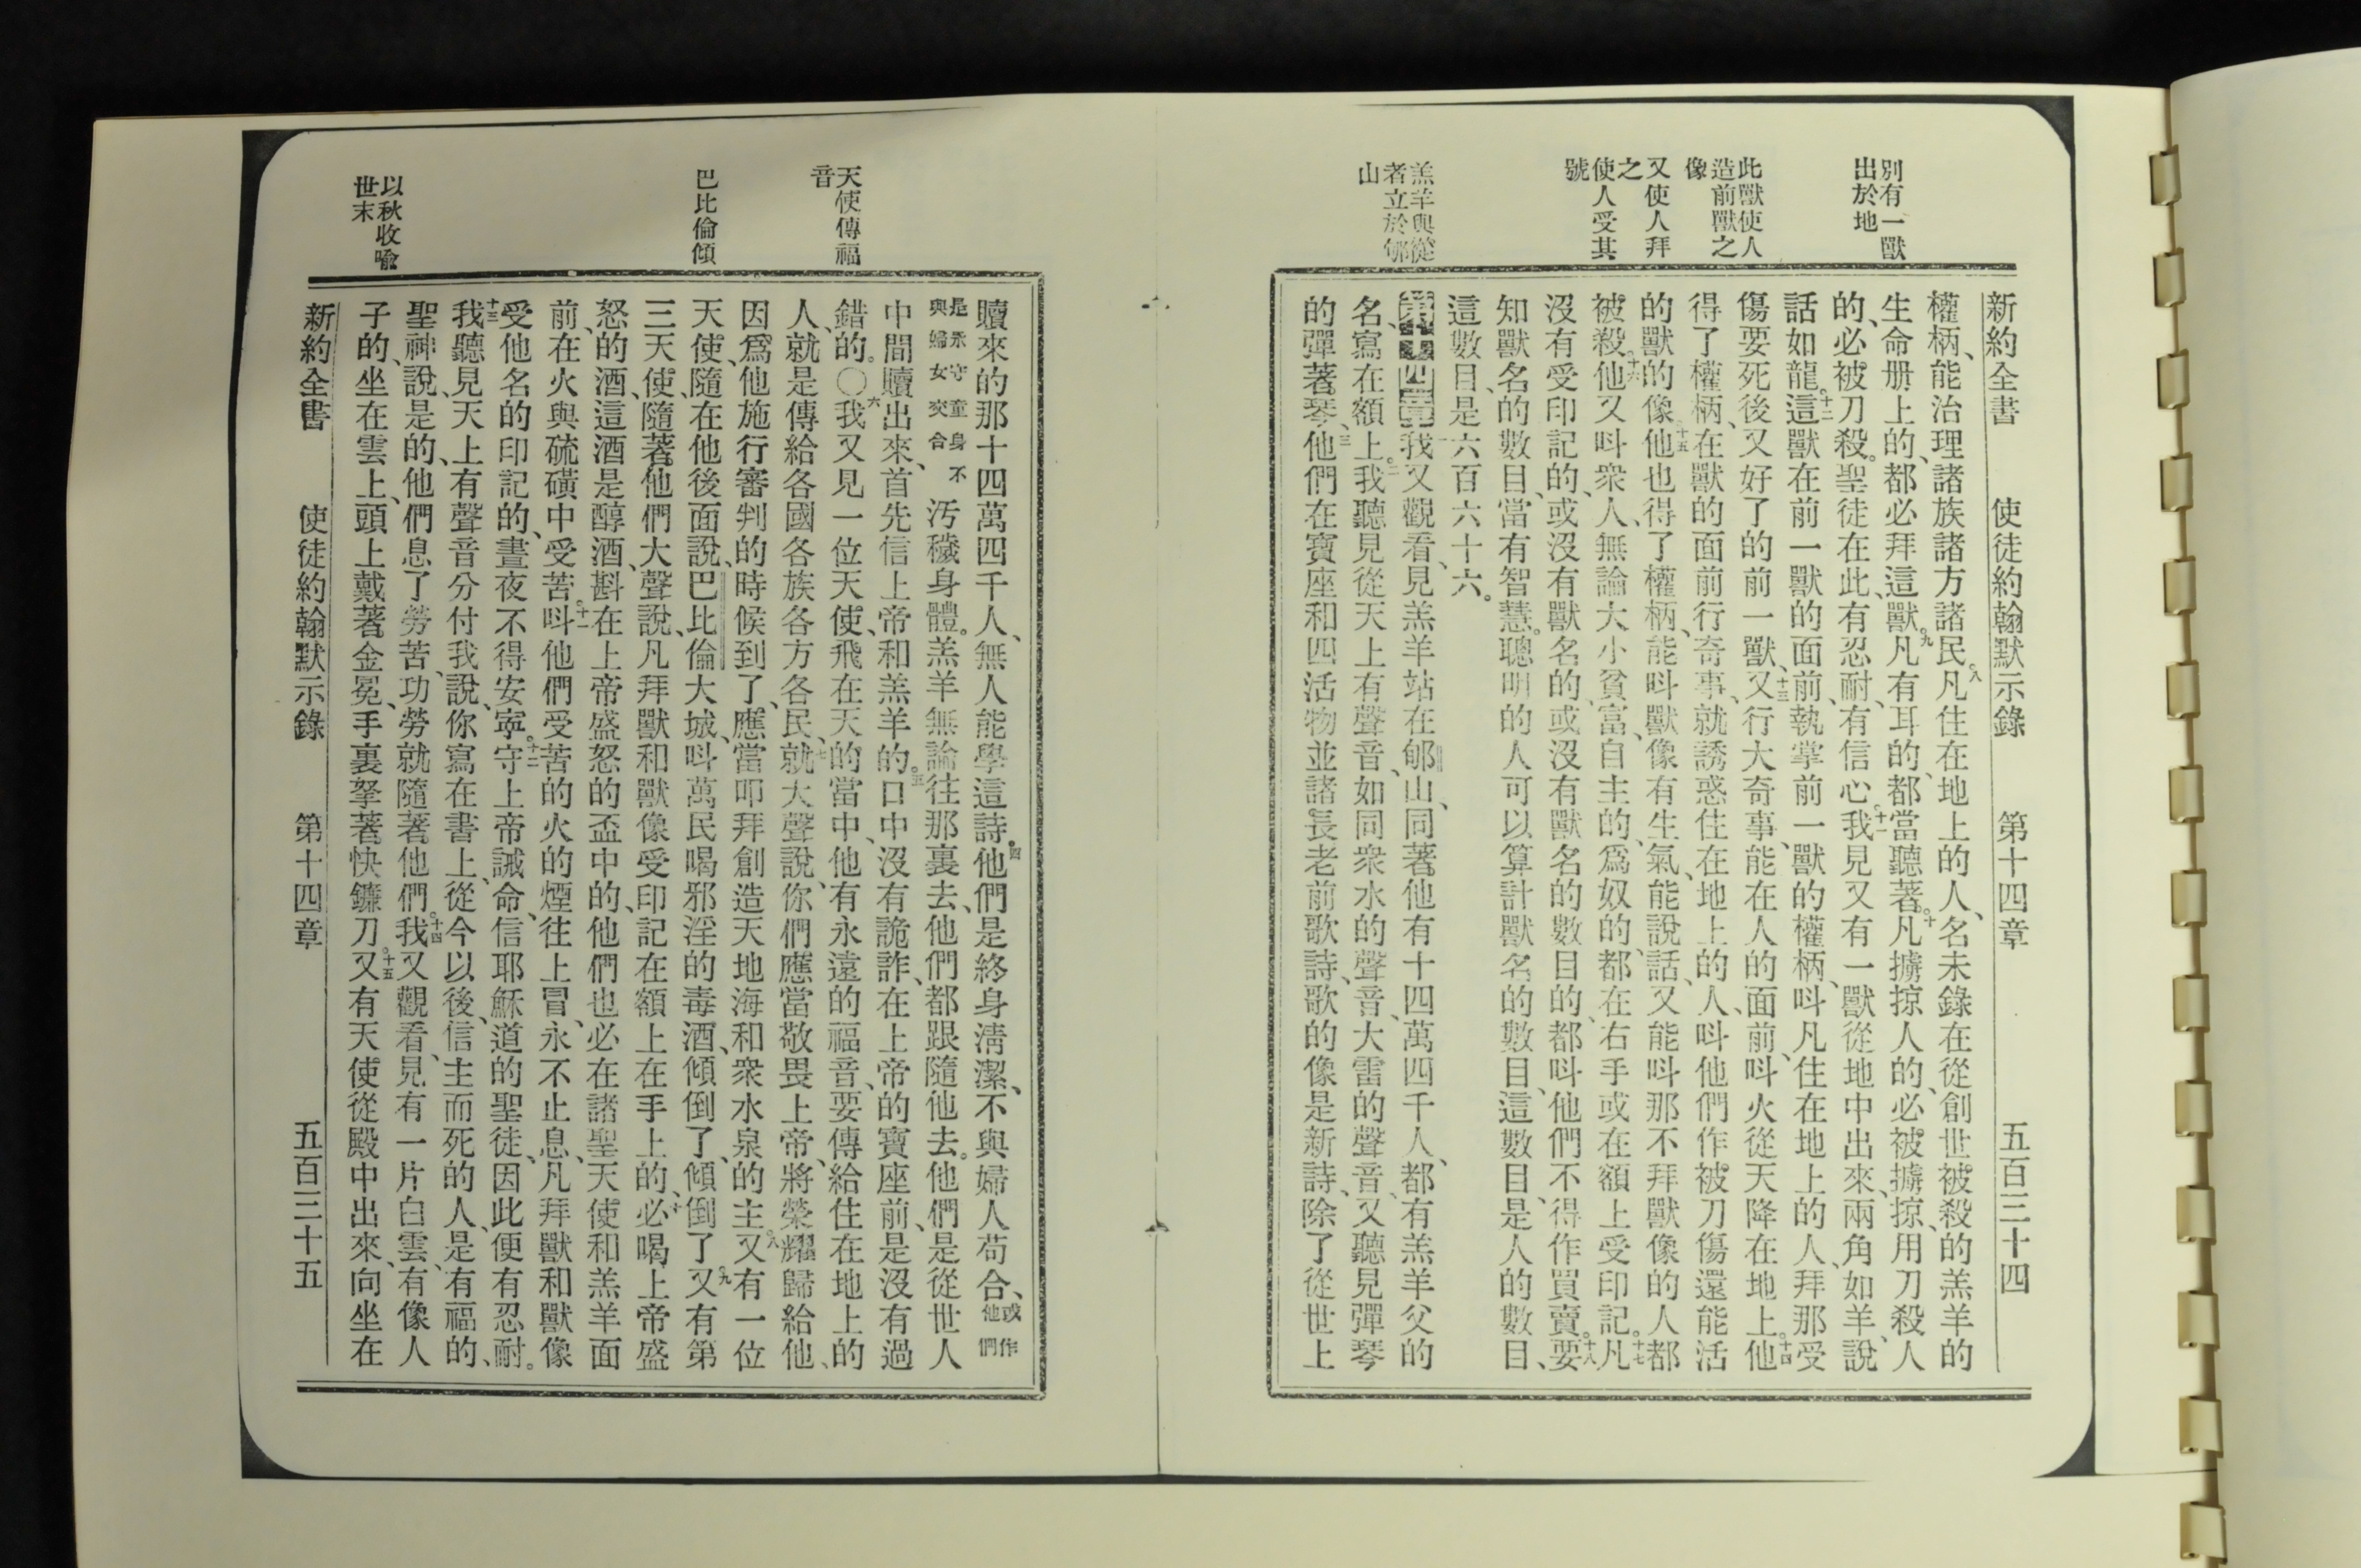 別有一獸
出於地
此獸使人
造前獸之
像
又使人拜
之
使人受其
號
羔羊與從
者立於郇
山
新約全書 使徒約翰默示錄 第十四章 五百三十四
權柄、能治理諸族諸方諸民。八凡住在地上的人、名未錄在從創世被殺的羔羊的
生命册上的、都必拜這獸。九凡有耳的、都當聽著。十凡擄掠人的、必被擄掠、用刀殺人
的、必被刀殺。聖徒在此、有忍耐、有信心。十一我見又有一獸從地中出來、兩角如羊、說
話如龍。十二這獸在前一獸的面前、執掌前一獸的權柄、呌凡住在地上的人、拜那受
傷要死後又好了的前一獸、十三又行大奇事、能在人的面前、呌火從天降在地上。十四他
得了權柄、在獸的面前行奇事、就誘惑住在地上的人、呌他們作被刀傷還能活
的獸的像、十五他也得了權柄、能呌獸像有生氣、能說話、又能呌那不拜獸像的人都
被殺。十六他又呌衆人、無論大小貧富、自主的、爲奴的、都在右手或在額上受印記。十七凡
沒有受印記的、或沒有獸名的、或沒有獸名的數目的、都呌他們不得作買賣。十八要
知獸名的數目、當有智慧。聰明的人可以算計獸名的數目、這數目、是人的數目、
這數目、是六百六十六。
第十四章一我又觀看、見羔羊站在郇山、同著他有十四萬四千人、都有羔羊父的
名、寫在額上。二我聽見從天上有聲音、如同衆水的聲音、大雷的聲音、又聽見彈琴
的彈著琴、三他們在寶座和四活物並諸長老前歌詩、歌的像是新詩、除了從世上
天使傳福
音
巴比倫傾
以秋收喻
世末
贖來的那十四萬四千人、無人能學這詩。四他們是終身淸潔、不與婦人苟合、或作他們
是永守童身不與婦女交合 汚穢身體。羔羊無論往那裏去、他們都跟隨他去。他們是從世人
中間贖出來、首先信上帝和羔羊的。五口中沒有詭詐、在上帝的寶座前、是沒有過
錯的。〇六我又見一位天使、飛在天的當中、他有永遠的福音、要傳給住在地上的
人、就是傳給各國各族各方各民、七就大聲說、你們應當敬畏上帝、將榮耀歸給他、
因爲他施行審判的時候到了、應當叩拜創造天地海和衆水泉的主。八又有一位
天使、隨在他後面說、巴比倫大城、呌萬民喝邪淫的毒酒、傾倒了、傾倒了。九又有第
三天使、隨著他們大聲說、凡拜獸和獸像受印記在額上在手上的、十必喝上帝盛
怒的酒、這酒是醇酒、斟在上帝盛怒的盃中的、他們也必在諸聖天使和羔羊面
前、在火與硫磺中受苦。十一呌他們受苦的火的煙往上冒、永不止息、凡拜獸和獸像
受他名的印記的、晝夜不得安寧。十二守上帝誡命、信耶穌道的聖徒、因此便有忍耐。
十三我聽見天上有聲音分付我說、你寫在書上、從今以後、信主而死的人、是有福的、
聖神說、是的、他們息了勞苦、功勞就隨著他們。十四我又觀看、見有一片白雲、有像人
子的、坐在雲上、頭上戴著金冕、手裏拏著快鐮刀。十五又有天使從殿中出來、向坐在
新約全書 使徒約翰默示錄 第十四章 五百三十五